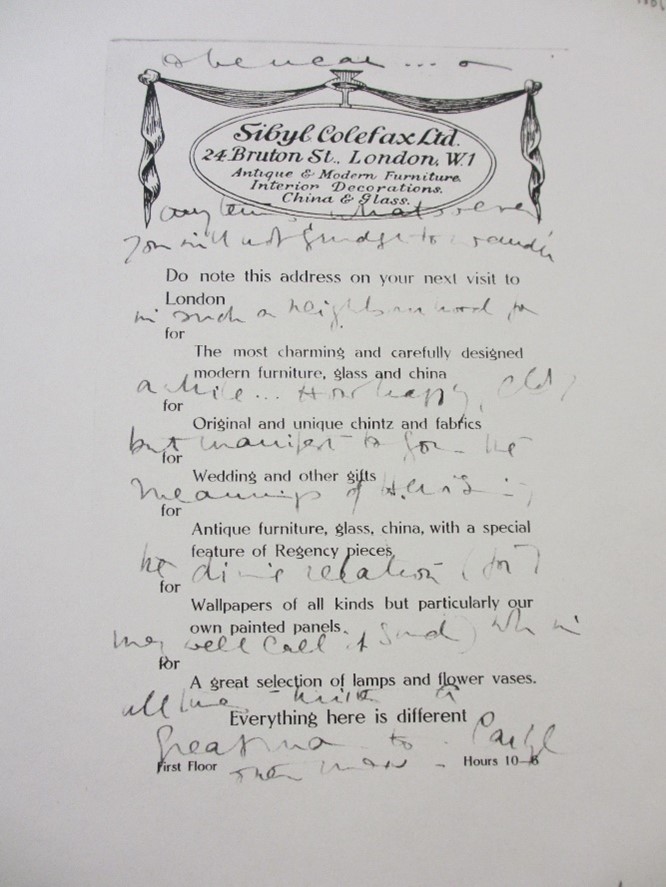 Sibyl Colefax Ltd.
24 Bruton St., London, W.1
Antique & Modern Furniture.
Interior Decorations.
China & Glass.
whatsoever
you will not grudge to wander
Do note this address on your next visit to
London
in such a neighbourhood for
for
The most charming and carefully designed
modern furniture, glass and china
a while... How happy,
for
Original and unique chintz and fabrics
but manifest to you the
for
Wedding and other gifts
meanings of
for
Antique furniture, glass, china, with a special
feature of Regency pieces
the divine relation (for I
for
Wallpapers of all kinds but particularly our
own painted panels.
may well call it such) which in
for
A great selection of lamps and flower vases.
all
Everything here is different
great man to
First Floor Hours 10—6
other men